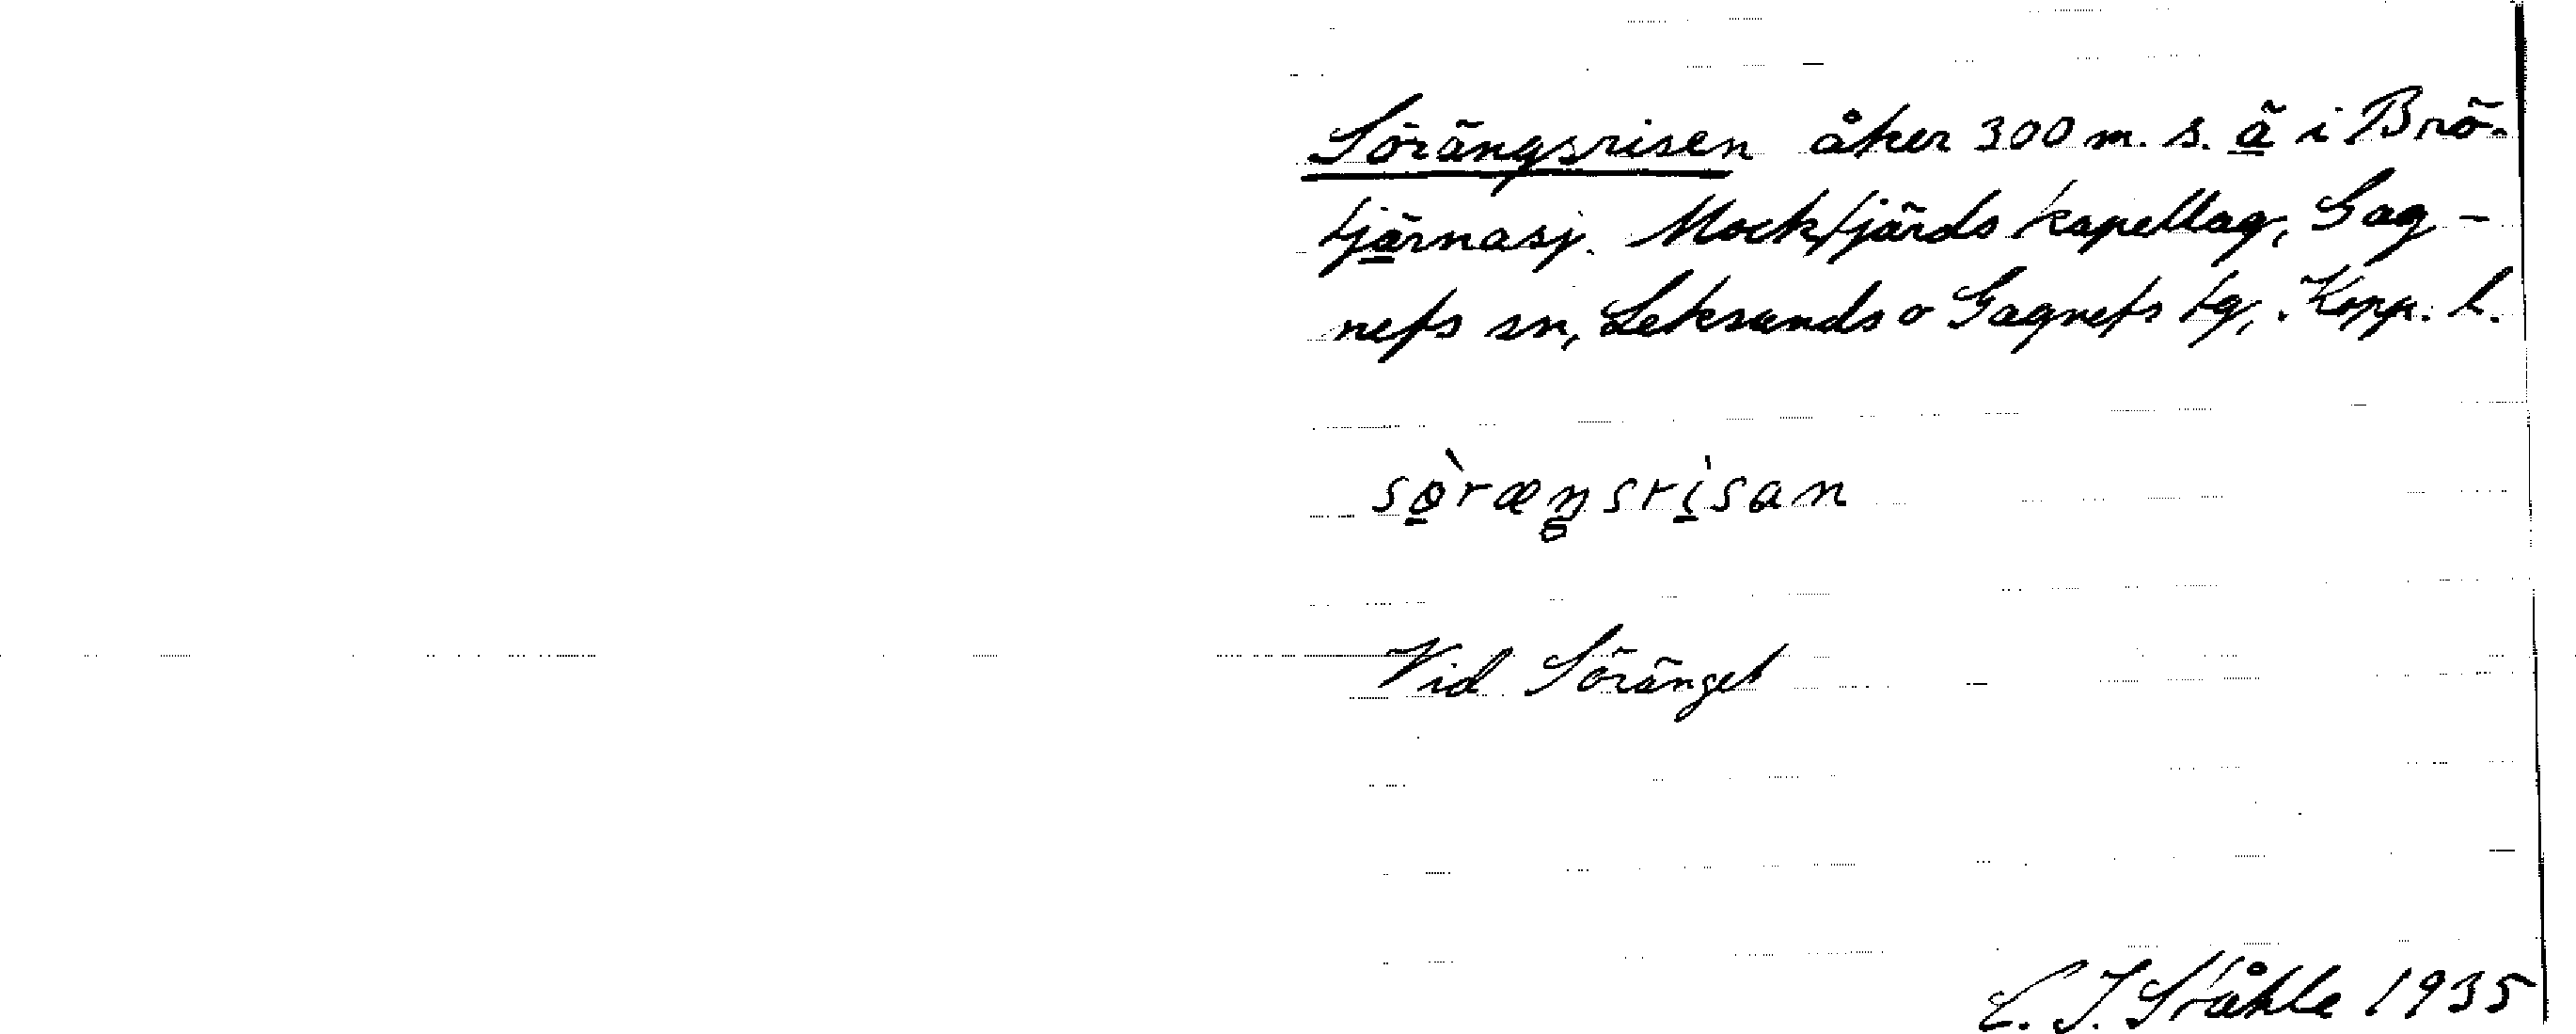 Sörängsrisen åker 300 m. s. ä i Brö-
tjärnasj. Mockfjärds kapellag, Gag-
nefs sn, Leksands o Gagnefs tg, Kopp. l.
sö̀ræŋsrìsan
Vid Söränget
C. I. Ståhle 1935